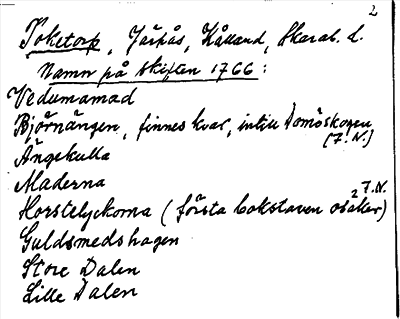 2
Toketorp, Järpås, Kålland, Skarab. L.
Namn på skiften 1766:
Vedumamad
Björnängen, finnes kvar, intill Domöskogen
(F.N.)
Ängekulla
Maderna
Horstelyckorna (första bokstaven osäker)
2 F.N.
Guldsmedshagen
Store Dalen
Lille Dalen